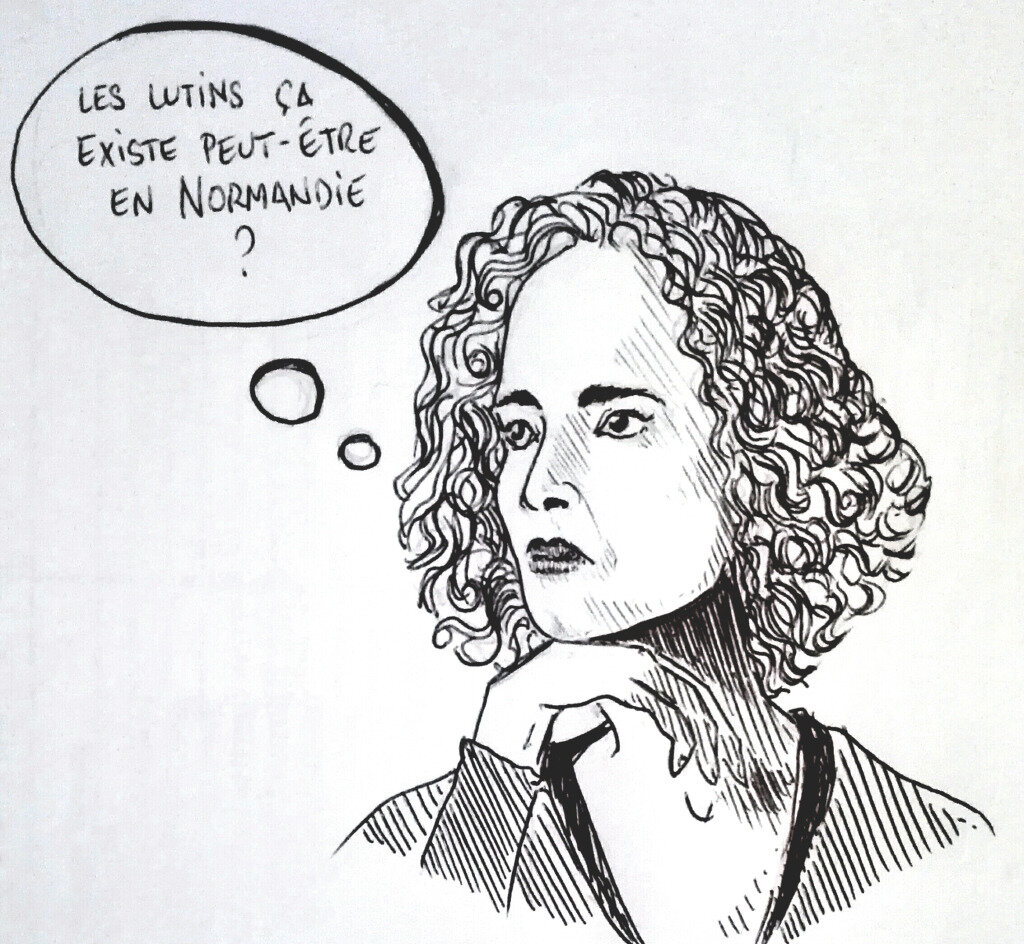 LES LUTINS ÇA
EXISTE PEUT-ÊTRE
EN NORMANDIE
?